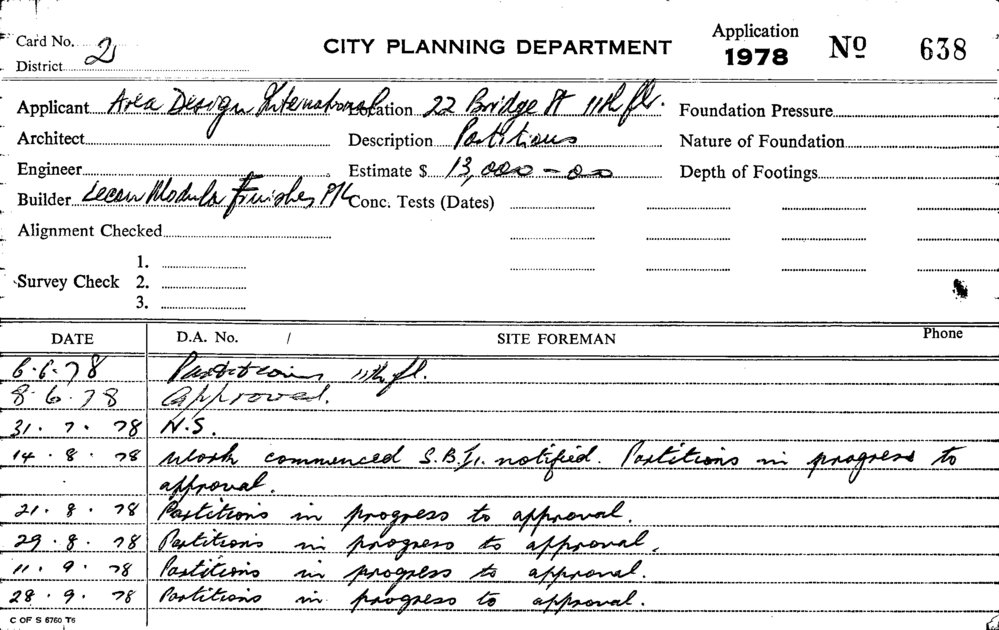 Card No. 2
District
CITY PLANNING DEPARTMENT
Application
1978
Nº 638
Applicant Area Design International Location 22 Bridge St 11th flr. Foundation Pressure
Architect Description Partitions Nature of Foundation
Engineer Estimate $ 13,000-00 Depth of Footings
Builder Modula Finishes P/L Conc. Tests (Dates)
Alignment Checked
1.
Survey Check 2.
3.
DATE D.A. No. / SITE FOREMAN Phone
6.6.78 Partitions 11th fl.
8.6.78 Approved.
31.7.78 N.S.
14.8.78 Work commenced S.B.I. notified. Partitions in progress to
approval.
21.8.78 Partitions in progress to approval.
29.8.78 Partitions in progress to approval.
11.9.78 Partitions in progress to approval.
28.9.78 Partitions in progress to approval.
C OF S 6760 T6